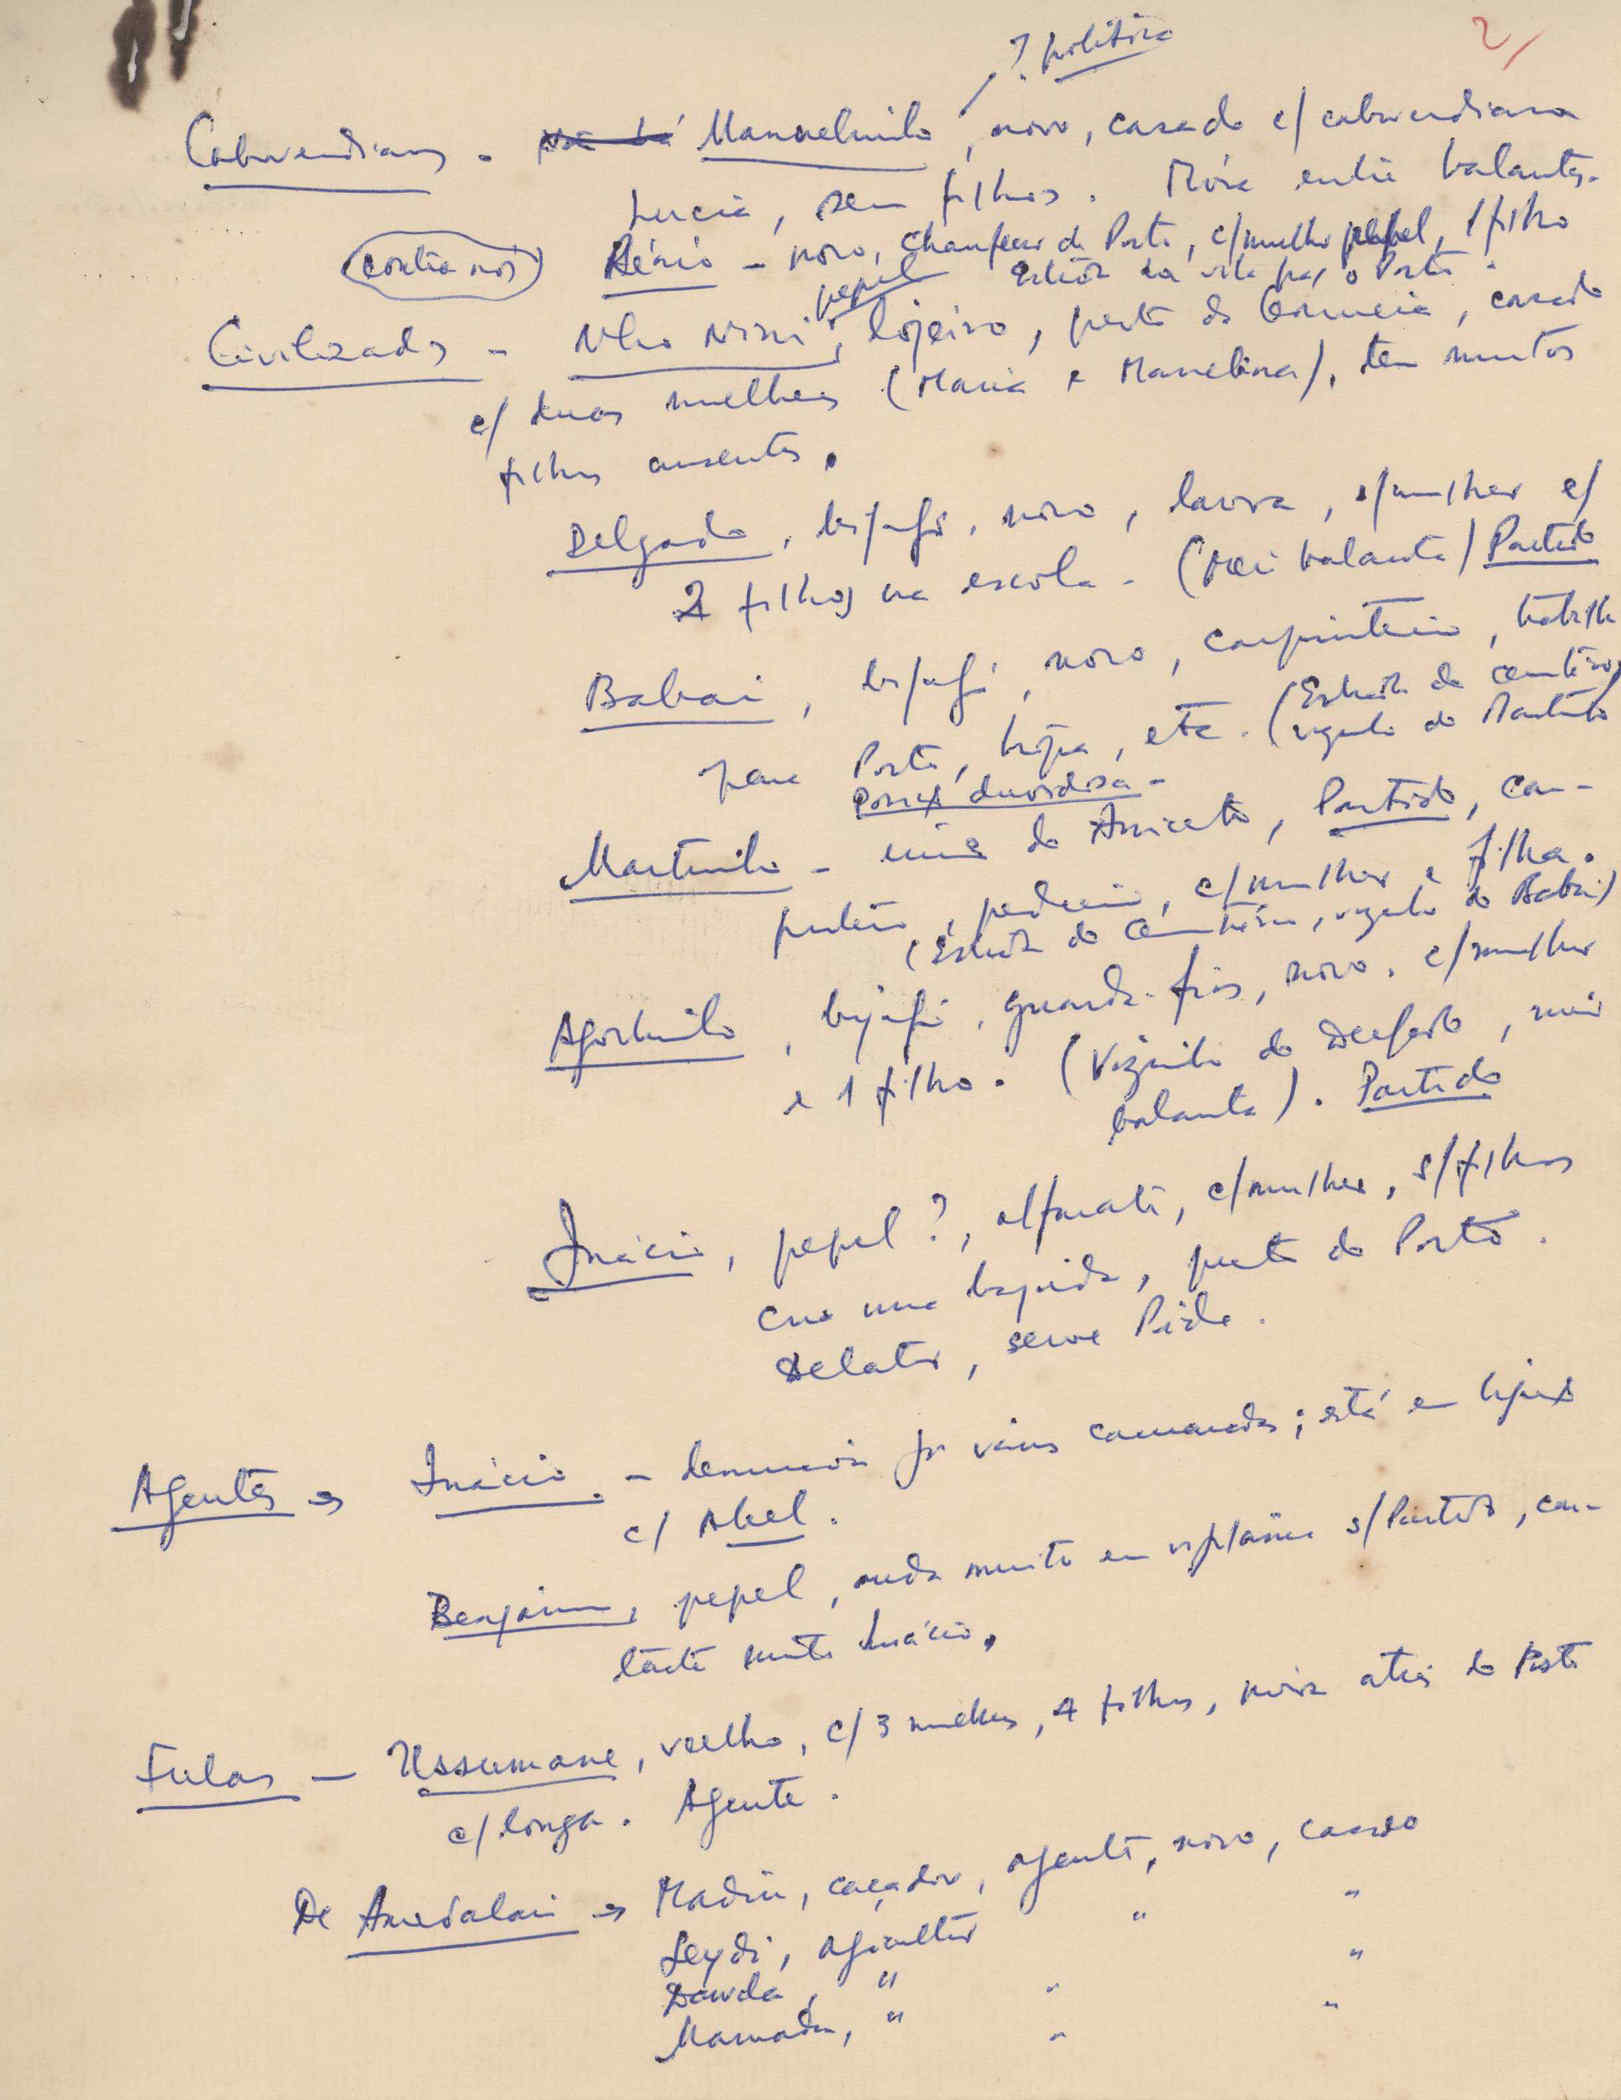 2/
? política
Caboverdianos - Manuelinho, novo, casado c/ caboverdiana
Lucia, sem filhos. Móra entre balantas.
(contra nós) - novo, Chauffeur do Porto, c/ mulher pepel, 1 filho
Estrada da vila para o Porto.
pepel
Civilizados - Nho Nini, lojeiro, perto da Gouveia, casado
c/ duas mulheres (Maria e Marcelina), tem muitos
filhos ausentes.
Delgado, bijagó, novo, lavra, c/ mulher e/
2 filhos na escola - (mãi balanta) Partido
Babai, bijagó, novo, carpinteiro, trabalha
para Porto, tropa, etc. (Estrada do cemitério,
vizinho do Martinho
Posição duvidosa -
Martinho - irmão do Aniceto, Partido, car-
pinteiro, pedreiro, c/ mulher e filha.
(Estrada do Cemitério, vizinho do Babai)
Agostinho, bijagó, guarda-fios, novo. c/ mulher
e 1 filho. (Vizinho do Delgado, mãi
balanta). Partido
Inácio, pepel?, alfaiate, c/ mulher, s/ filhos
cria uma rapariga, perto do Porto.
Delator, serve Pide.
Agentes → Inácio - denuncia p. vários camaradas; está em ligação
c/ Abel.
Benjamim, pepel, anda muito em s/ Partido, con-
tacta muito Inácio.
Fulas - Ussumane, velho, c/ 3 mulheres, 4 filhos, móra atrás do Posto
c/ longa. Agente.
De Amedalai → Madiu, caçador, agente, novo, casado
Seydi, agricultor " "
Dauda, " " "
Mamadu, " " "